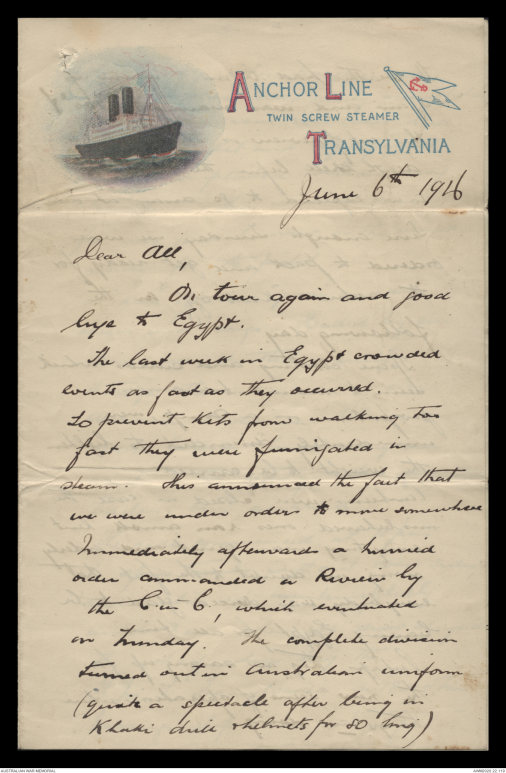 ANCHOR LINE
TWIN SCREW STEAMER
TRANSYLVANIA
June 6th 1916
Dear All,
On tour again and good
bye to Egypt.
The last week in Egypt crowded
events as fast as they occurred.
To prevent Kits from walking too
fast they were fumigated in
steam. This announced the fact that
we were under orders to move somewhere
Immediately afterwards a hurried
order commanded a Review by
the C in C, which eventuated
on Sunday. The complete division
turned out in Australian uniform
(quite a spectacle after being in
Khaki drill & helmets for so long)
AUSTRALIAN WAR MEMORIAL